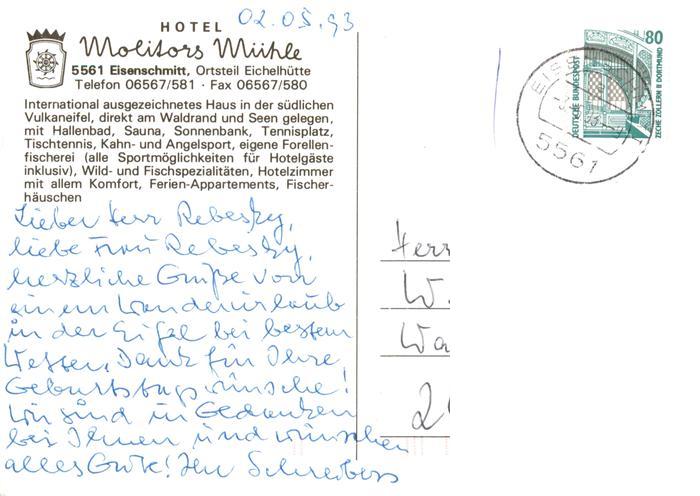 02.05.93
HOTEL
Molitors Mühle
5561 Eisenschmitt, Ortsteil Eichelhütte
Telefon 06567/581 · Fax 06567/580
International ausgezeichnetes Haus in der südlichen
Vulkaneifel, direkt am Waldrand und Seen gelegen,
mit Hallenbad, Sauna, Sonnenbank, Tennisplatz,
Tischtennis, Kahn- und Angelsport, eigene Forellen-
fischerei (alle Sportmöglichkeiten für Hotelgäste
inklusiv), Wild- und Fischspezialitäten, Hotelzimmer
mit allem Komfort, Ferien-Appartements, Fischer-
häuschen
Lieber Herr Rebesky,
liebe Frau Rebesky,
herzliche Grüße von
einem Wanderurlaub
in der Eifel bei bestem
Wetter. Dank für Ihre
Geburtstagswünsche!
Wir sind in Gedanken
bei Ihnen und wünschen
alles Gute! Ihre Schreibers
80
DEUTSCHE BUNDESPOST
ZECHE ZOLLERN II DORTMUND
5561
Herr
W.
Wa
2